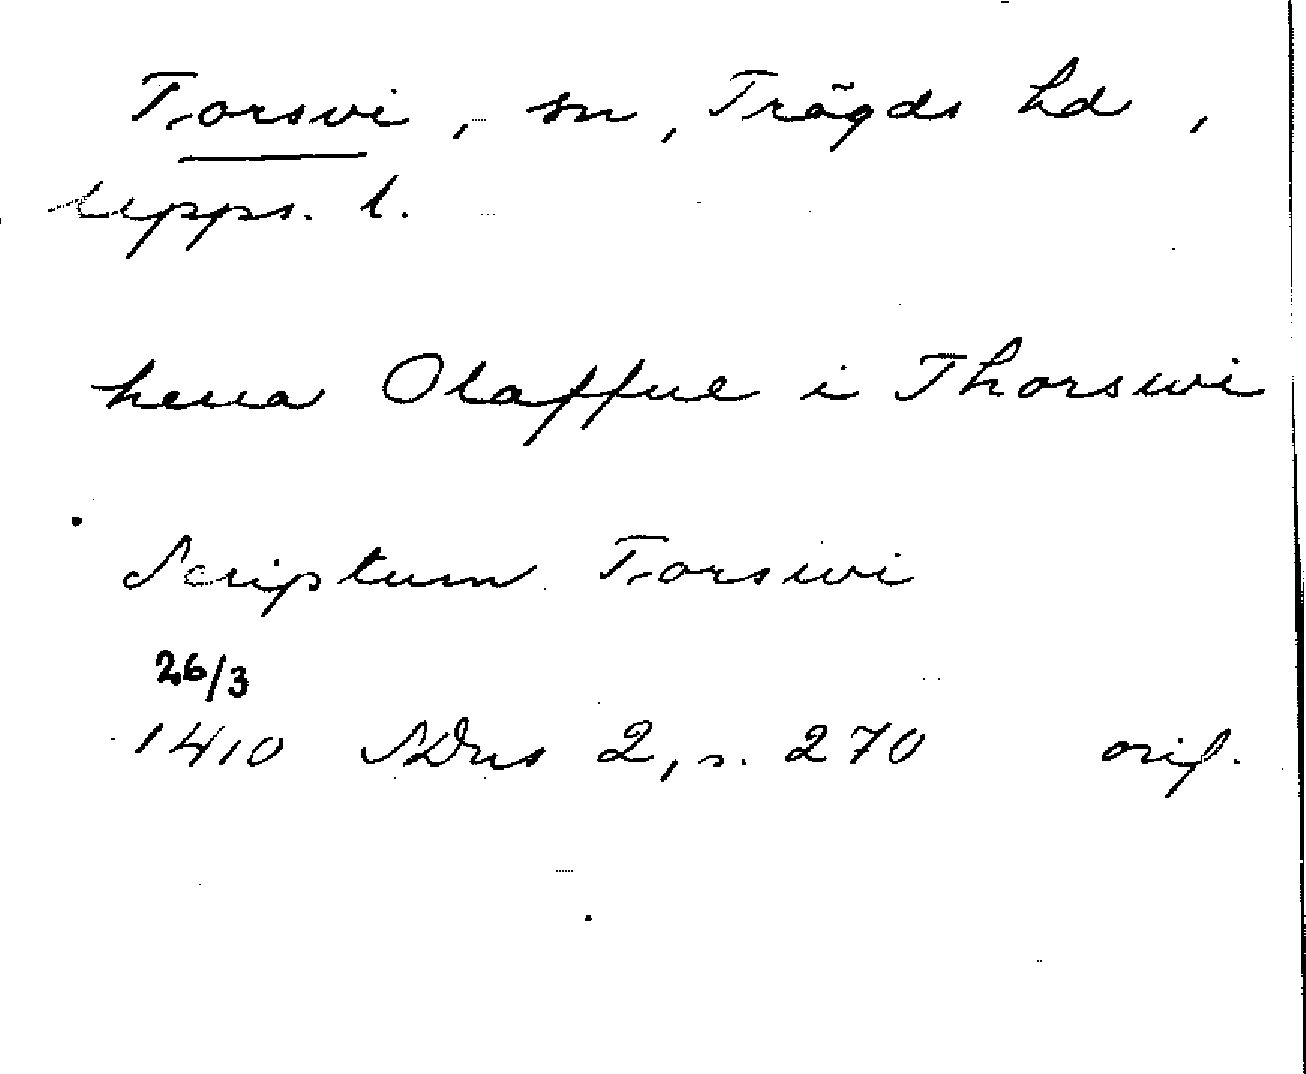 Torsvi, sn, Trögds hd,
Upps. l.
herra Olaffue i Thorswi
Scriptum Torswi
26/3
1410 SDns 2, s. 270 orig.